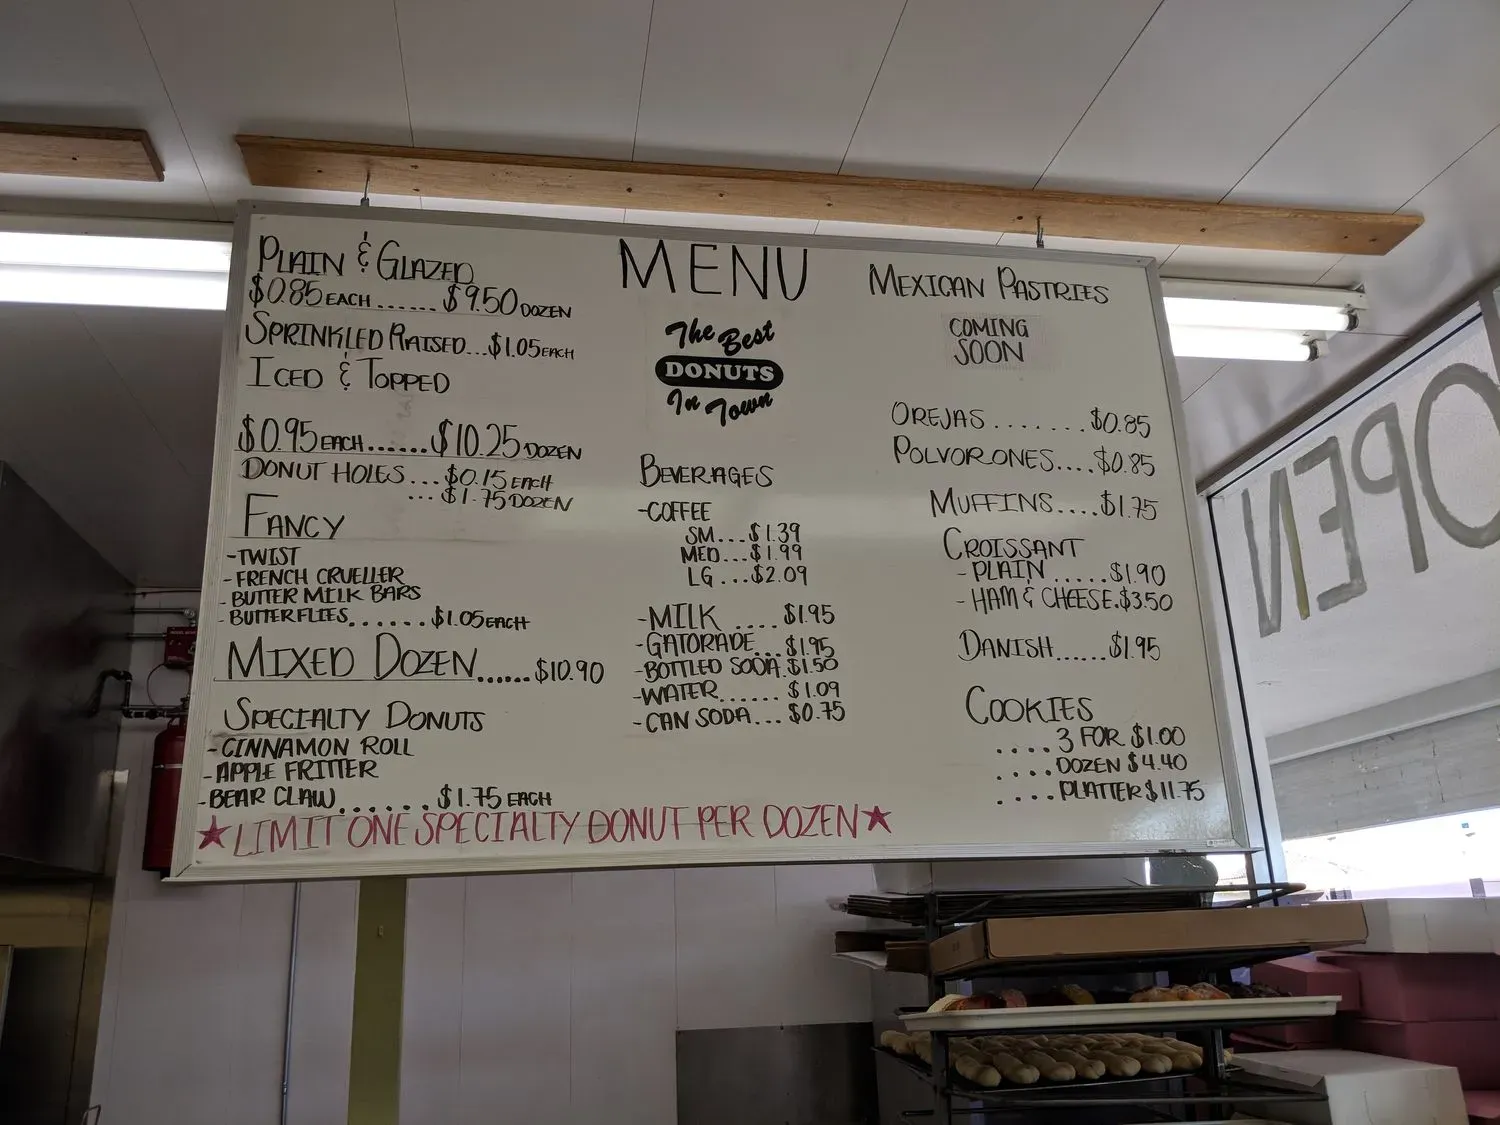 PLAIN & GLAZED
$0.85 EACH ...... $9.50 DOZEN
SPRINKLED RAISED...$1.05 EACH
ICED & TOPPED
$0.95 EACH ...... $10.25 DOZEN
DONUT HOLES ... $0.15 EACH
... $1.75 DOZEN
FANCY
-TWIST
-FRENCH CRUELLER
-BUTTER MILK BARS
-BUTTERFLIES......$1.05 EACH
MIXED DOZEN......$10.90
SPECIALTY DONUTS
-CINNAMON ROLL
-APPLE FRITTER
-BEAR CLAW......$1.75 EACH
★LIMIT ONE SPECIALTY DONUT PER DOZEN★
MENU
The Best
DONUTS
In Town
BEVERAGES
-COFFEE
SM...$1.39
MED...$1.99
LG...$2.09
-MILK ....$1.95
-GATORADE...$1.95
-BOTTLED SODA.$1.50
-WATER......$1.09
-CAN SODA...$0.75
MEXICAN PASTRIES
COMING
SOON
OREJAS.......$0.85
POLVORONES....$0.85
MUFFINS....$1.75
CROISSANT
-PLAIN.....$1.90
-HAM & CHEESE.$3.50
DANISH......$1.95
COOKIES
....3 FOR $1.00
....DOZEN $4.40
....PLATTER $11.75
OPEN